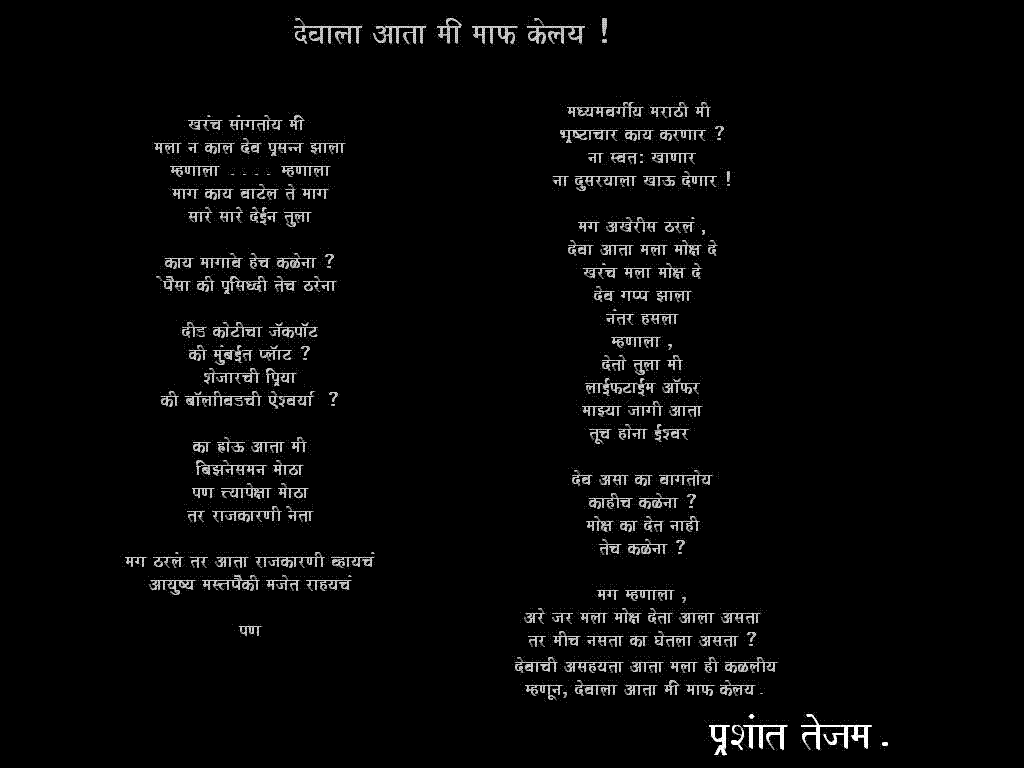 देवाला आता मी माफ केलय !
खरंच सांगतोय मी
मला न काल देव प्रसन्न झाला
म्हणाला .... म्हणाला
माग काय वाटेल ते माग
सारे सारे देईन तुला
काय मागावे हेच कळेना ?
पैसा की प्रसिध्दी तेच ठरेना
दीड कोटीचा जॅकपॉट
की मुंबईत प्लॅाट ?
शेजारची प्रिया
की बॉलीवडची ऐश्वर्या ?
का होऊ आता मी
बिझनेसमन मोठा
पण त्यापेक्षा मोठा
तर राजकारणी नेता
मग ठरलं तर आता राजकारणी व्हायचं
आयुष्य मस्तपैकी मजेत राहयचं
पण
मध्यमवर्गीय मराठी मी
भ्रष्टाचार काय करणार ?
ना स्वतः खाणार
ना दुसरयाला खाऊ देणार !
मग अखेरीस ठरलं ,
देवा आता मला मोक्ष दे
खरंच मला मोक्ष दे
देव गप्प झाला
नंतर हसला
म्हणाला ,
देतो तुला मी
लाईफटाईम ऑफर
माझ्या जागी आता
तूच होना ईश्वर
देव असा का वागतोय
काहीच कळेना ?
मोक्ष का देत नाही
तेच कळेना ?
मग म्हणाला ,
अरे जर मला मोक्ष देता आला असता
तर मीच नसता का घेतला असता ?
देवाची असहयता आता मला ही कळलीय
म्हणून, देवाला आता मी माफ केलय .
प्रशांत तेजम .